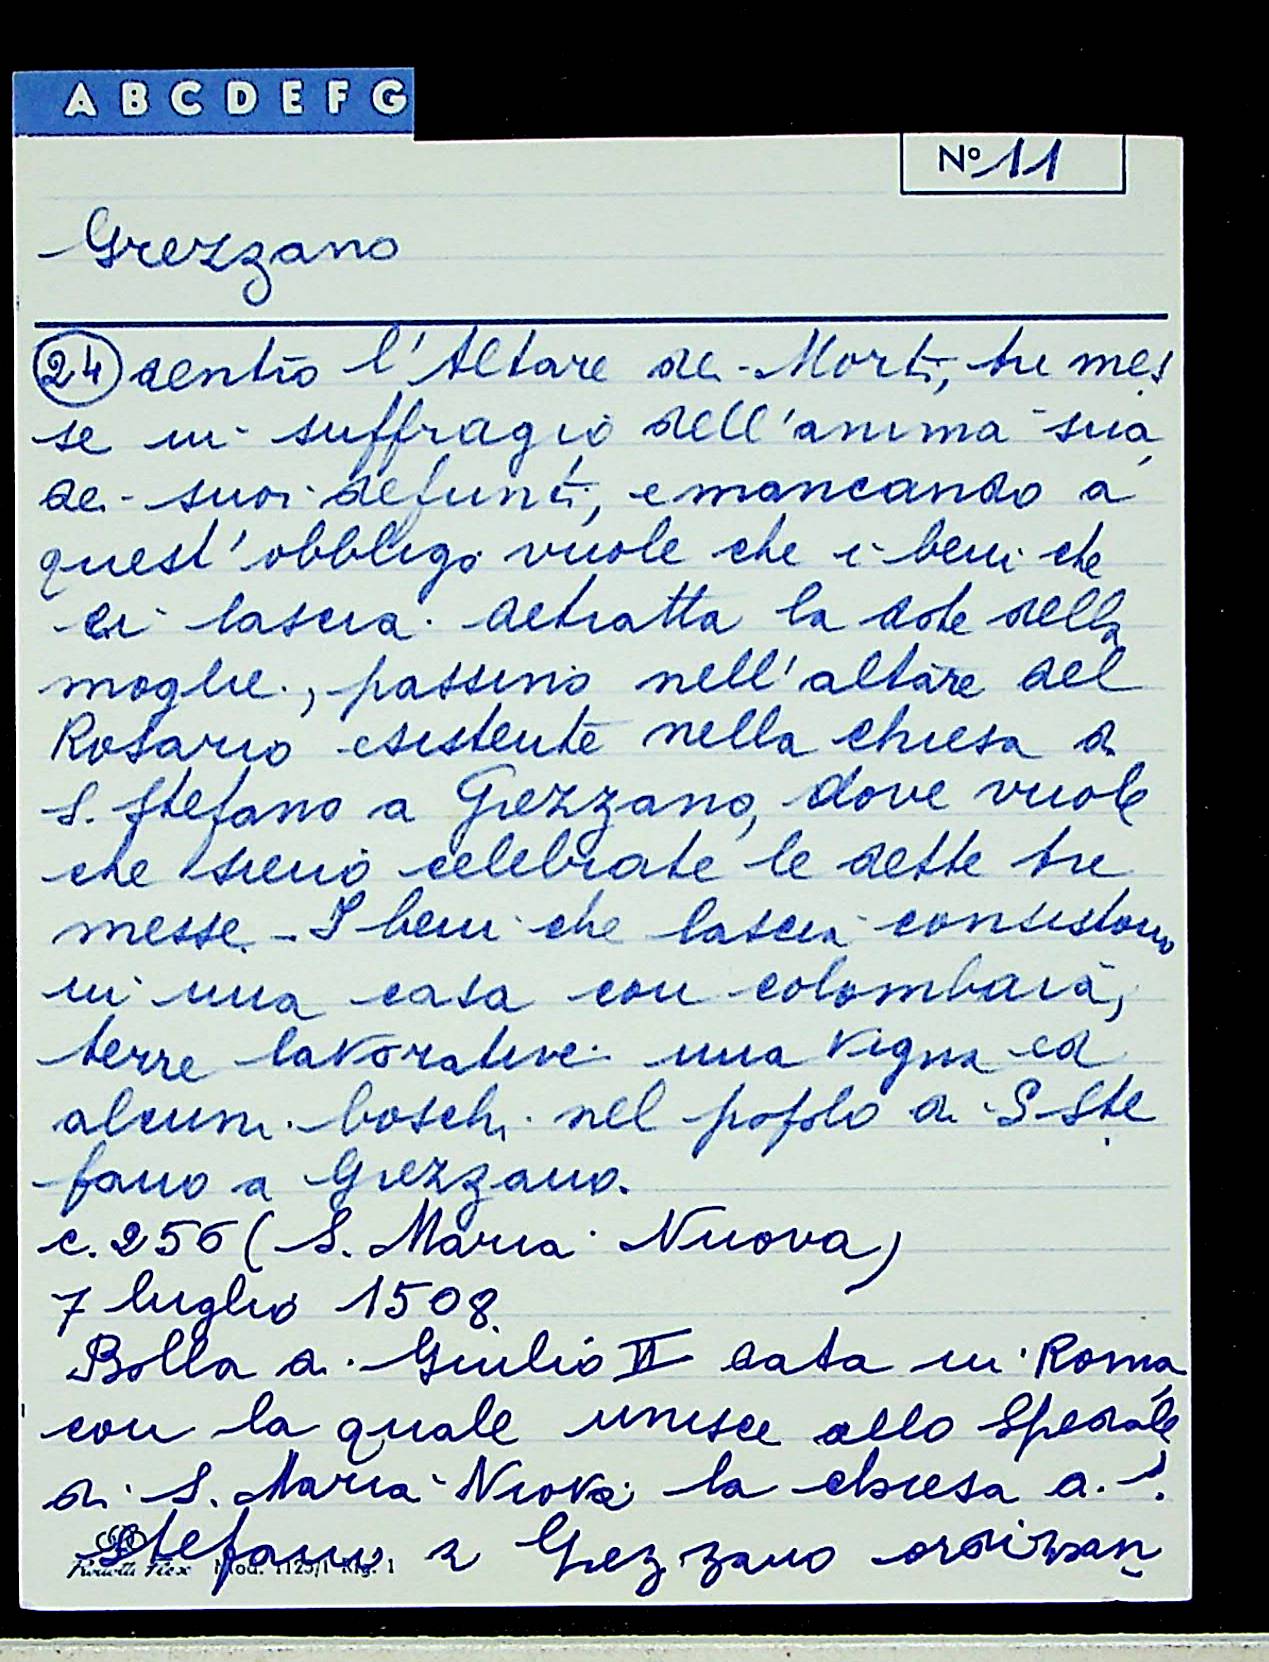 A B C D E F G
Nº 11
Grezzano
24 dentro l'Altare dei Morti, tre mes
se in suffragio dell'anima sua,
dei suoi defunti, e mancando a
quest'obbligo vuole che i beni che
ci lascia detratta la dote della
moglie, passino nell'altare del
Rosario esistente nella chiesa di
S. Stefano a Grezzano, dove vuole
che sieno celebrate le dette tre
messe. - I beni che lascia consistono
in una casa con colombaia,
terre lavorative una vigna ed
alcuni boschi nel popolo di S Ste
fano a Grezzano.
c. 256 (S. Maria Nuova)
7 luglio 1508
Bolla di Giulio II data in Roma
con la quale unisce allo Spedale
di S. Maria Nuova la chiesa di S.
Stefano a Grezzano ordinan
Mod. 1125/1 Rig. 1